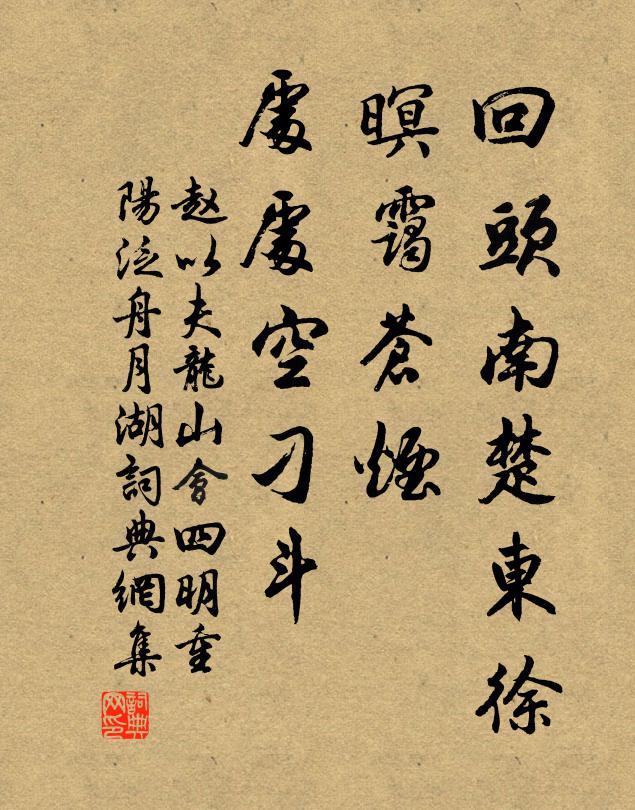 回頭南楚東徐
暝靄蒼煙
處處空刁斗
赵以夫龍山會四明重
陽泛舟月湖詞典網集
詞典
网印